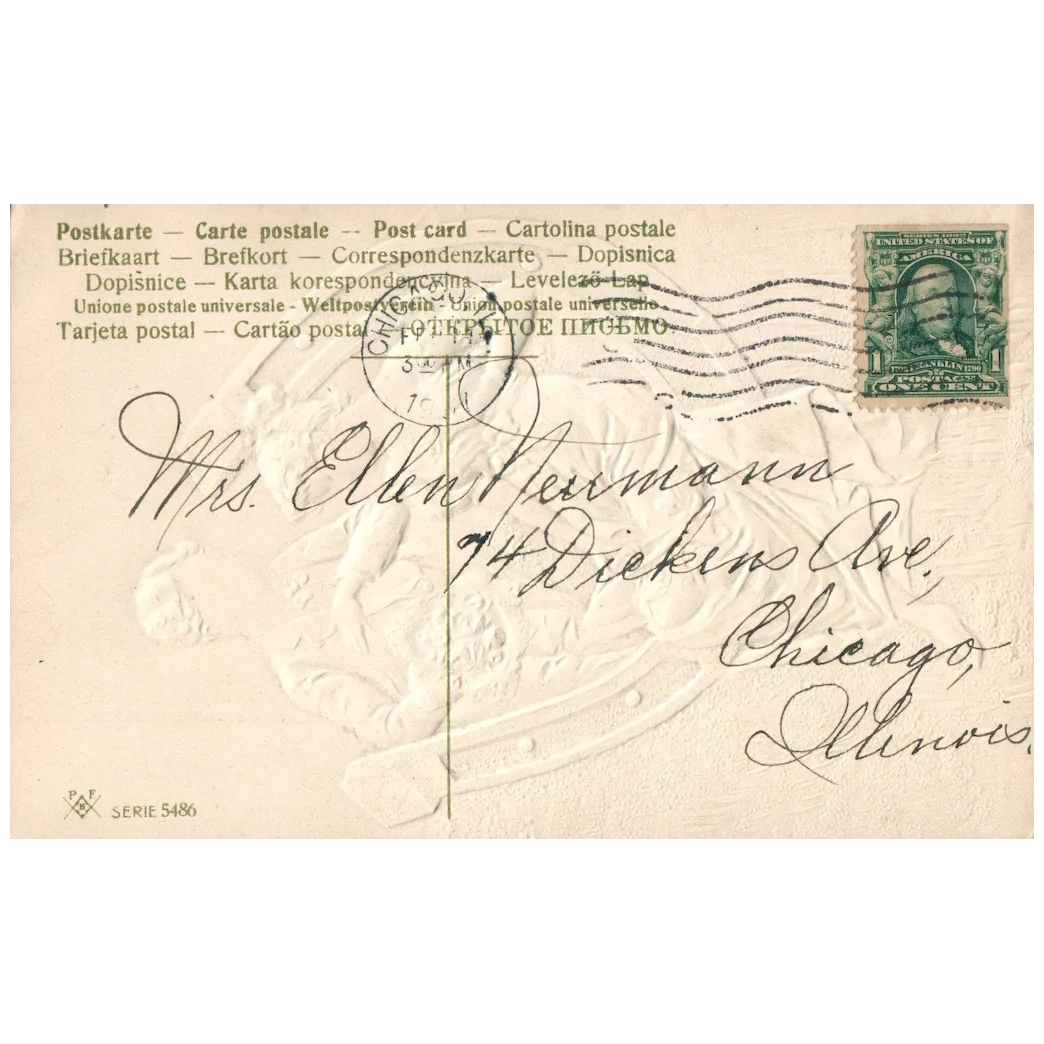 Postkarte — Carte postale -- Post card — Cartolina postale
Briefkaart — Brefkort — Correspondenzkarte — Dopisnica
Dopišnice — Karta korespondencyjna — Levelező-Lap
Unione postale universale - Weltpostverein - Union postale universelle
Tarjeta postal — Cartão postal — ОТКРЫТОЕ ПИСЬМО.
CHICAGO, ILL
3 30 PM
SERIES 1902
UNITED STATES OF
AMERICA
1 1706 FRANKLIN 1790 1
POSTAGE
ONE CENT
Mrs. Ellen Neumann
74 Dickens Ave,
Chicago,
Illinois.
P F
SERIE 5486